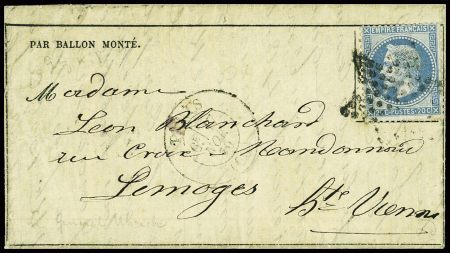 EMPIRE FRANÇAIS
PAR BALLON MONTÉ.
POSTES 20 C
Madame
Léon Blanchard
PARIS
rue Croix Mandonnaud
Limoges
Hte Vienne